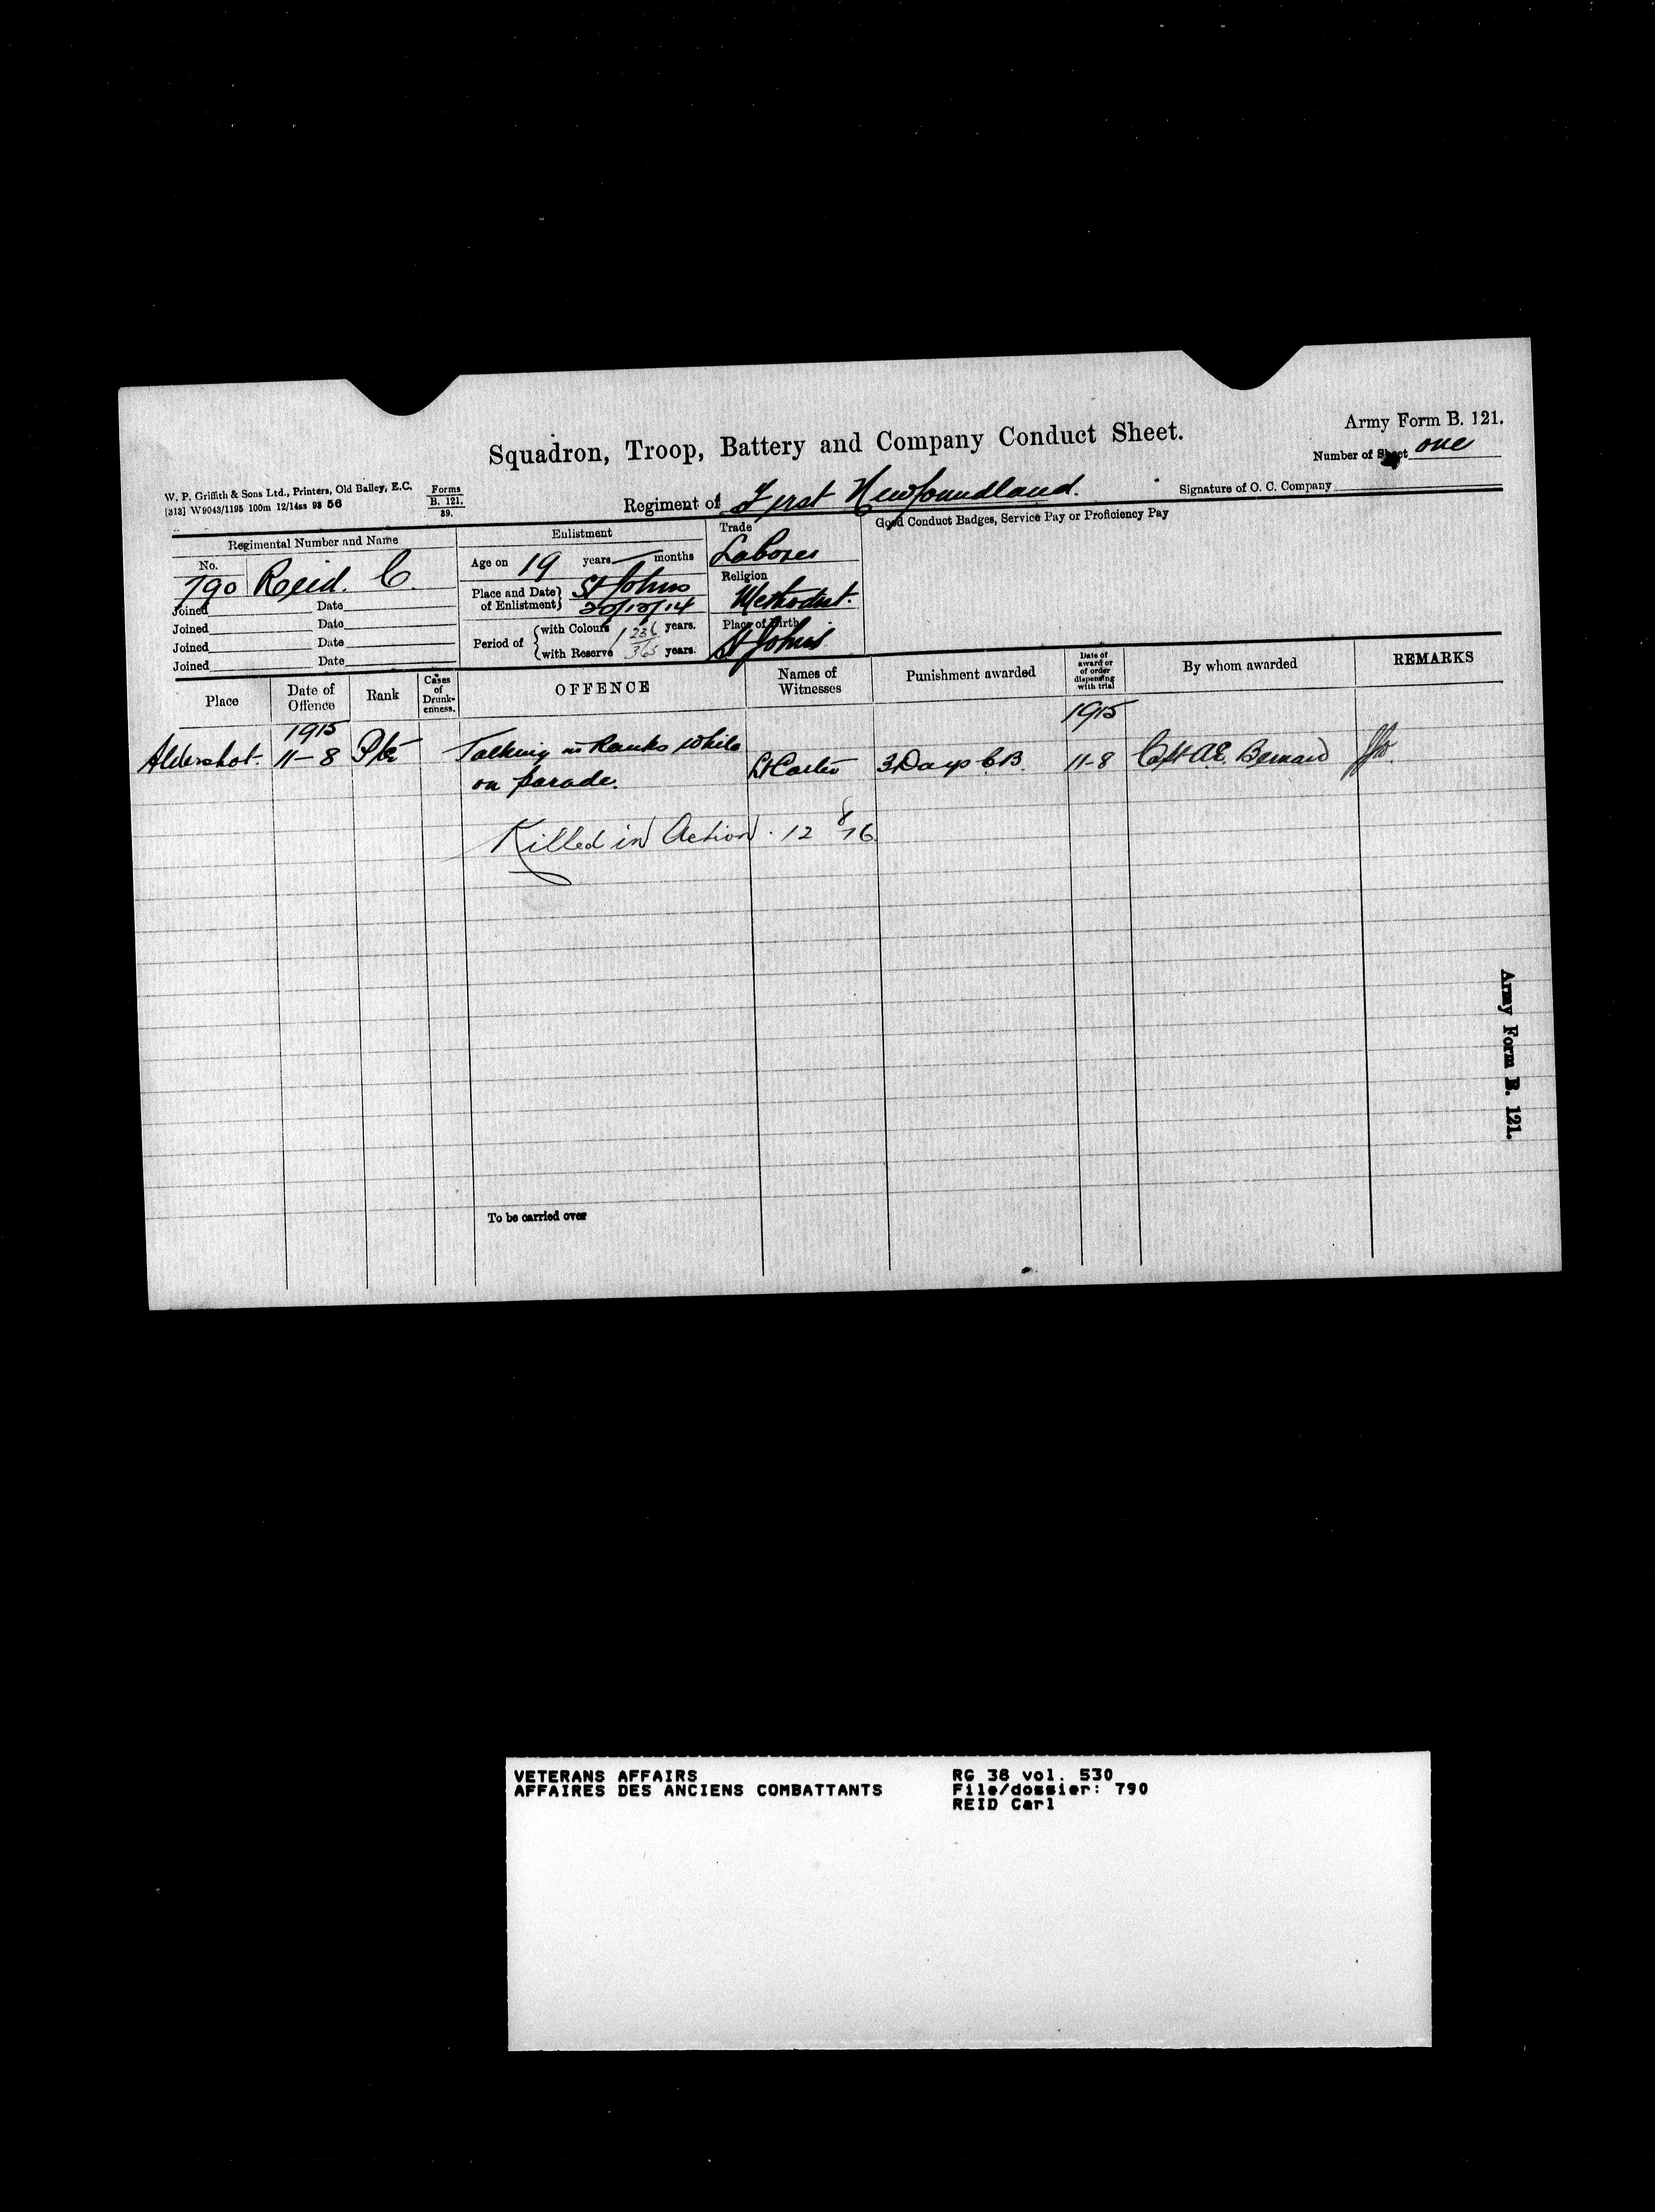 Army Form B. 121.
Squadron, Troop, Battery and Company Conduct Sheet.
Number of Sheet one
W. P. Griffith & Sons Ltd., Printers, Old Bailey, E.C.
[313] W9043/1195 100m 12/14ss 93 56
Forms
B. 121.
39.
Regiment of First Newfoundland.
Signature of O. C. Company
Regimental Number and Name
Enlistment
Trade
Good Conduct Badges, Service Pay or Proficiency Pay
No.
790 Reid. C.
Age on 19 years — months
Laborer
Religion
Methodist.
Place and Date of Enlistment St Johns
20/12/14
Joined Date
Joined Date
Joined Date
Joined Date
Period of
with Colours 1 236 years.
with Reserve 365 years.
Place of Birth
St Johns
Place
Date of Offence
Rank
Cases of Drunkenness.
OFFENCE
Names of Witnesses
Punishment awarded
Date of award or of order dispensing with trial
By whom awarded
REMARKS
1915
1915
Aldershot. 11-8 Pte Talking in Ranks while Lt Carter 3 Days C.B. 11-8 Capt A.E. Bernard
on parade.
Killed in Action. 12 8/16
Army Form B. 121.
To be carried over
VETERANS AFFAIRS
AFFAIRES DES ANCIENS COMBATTANTS
RG 38 vol. 530
File/dossier: 790
REID Carl